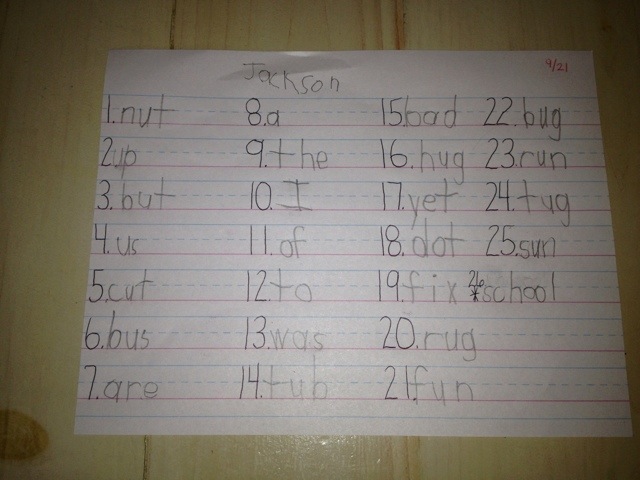 9/21
Jackson
1.nut 8.a 15.bad 22.bug
2.up 9.the 16.hug 23.run
3.but 10.I 17.yet 24.tug
4.us 11.of 18.dot 25.sun
5.cut 12.to 19.fix 26*school
6.bus 13.was 20.rug
7.are 14.tub 21.fun